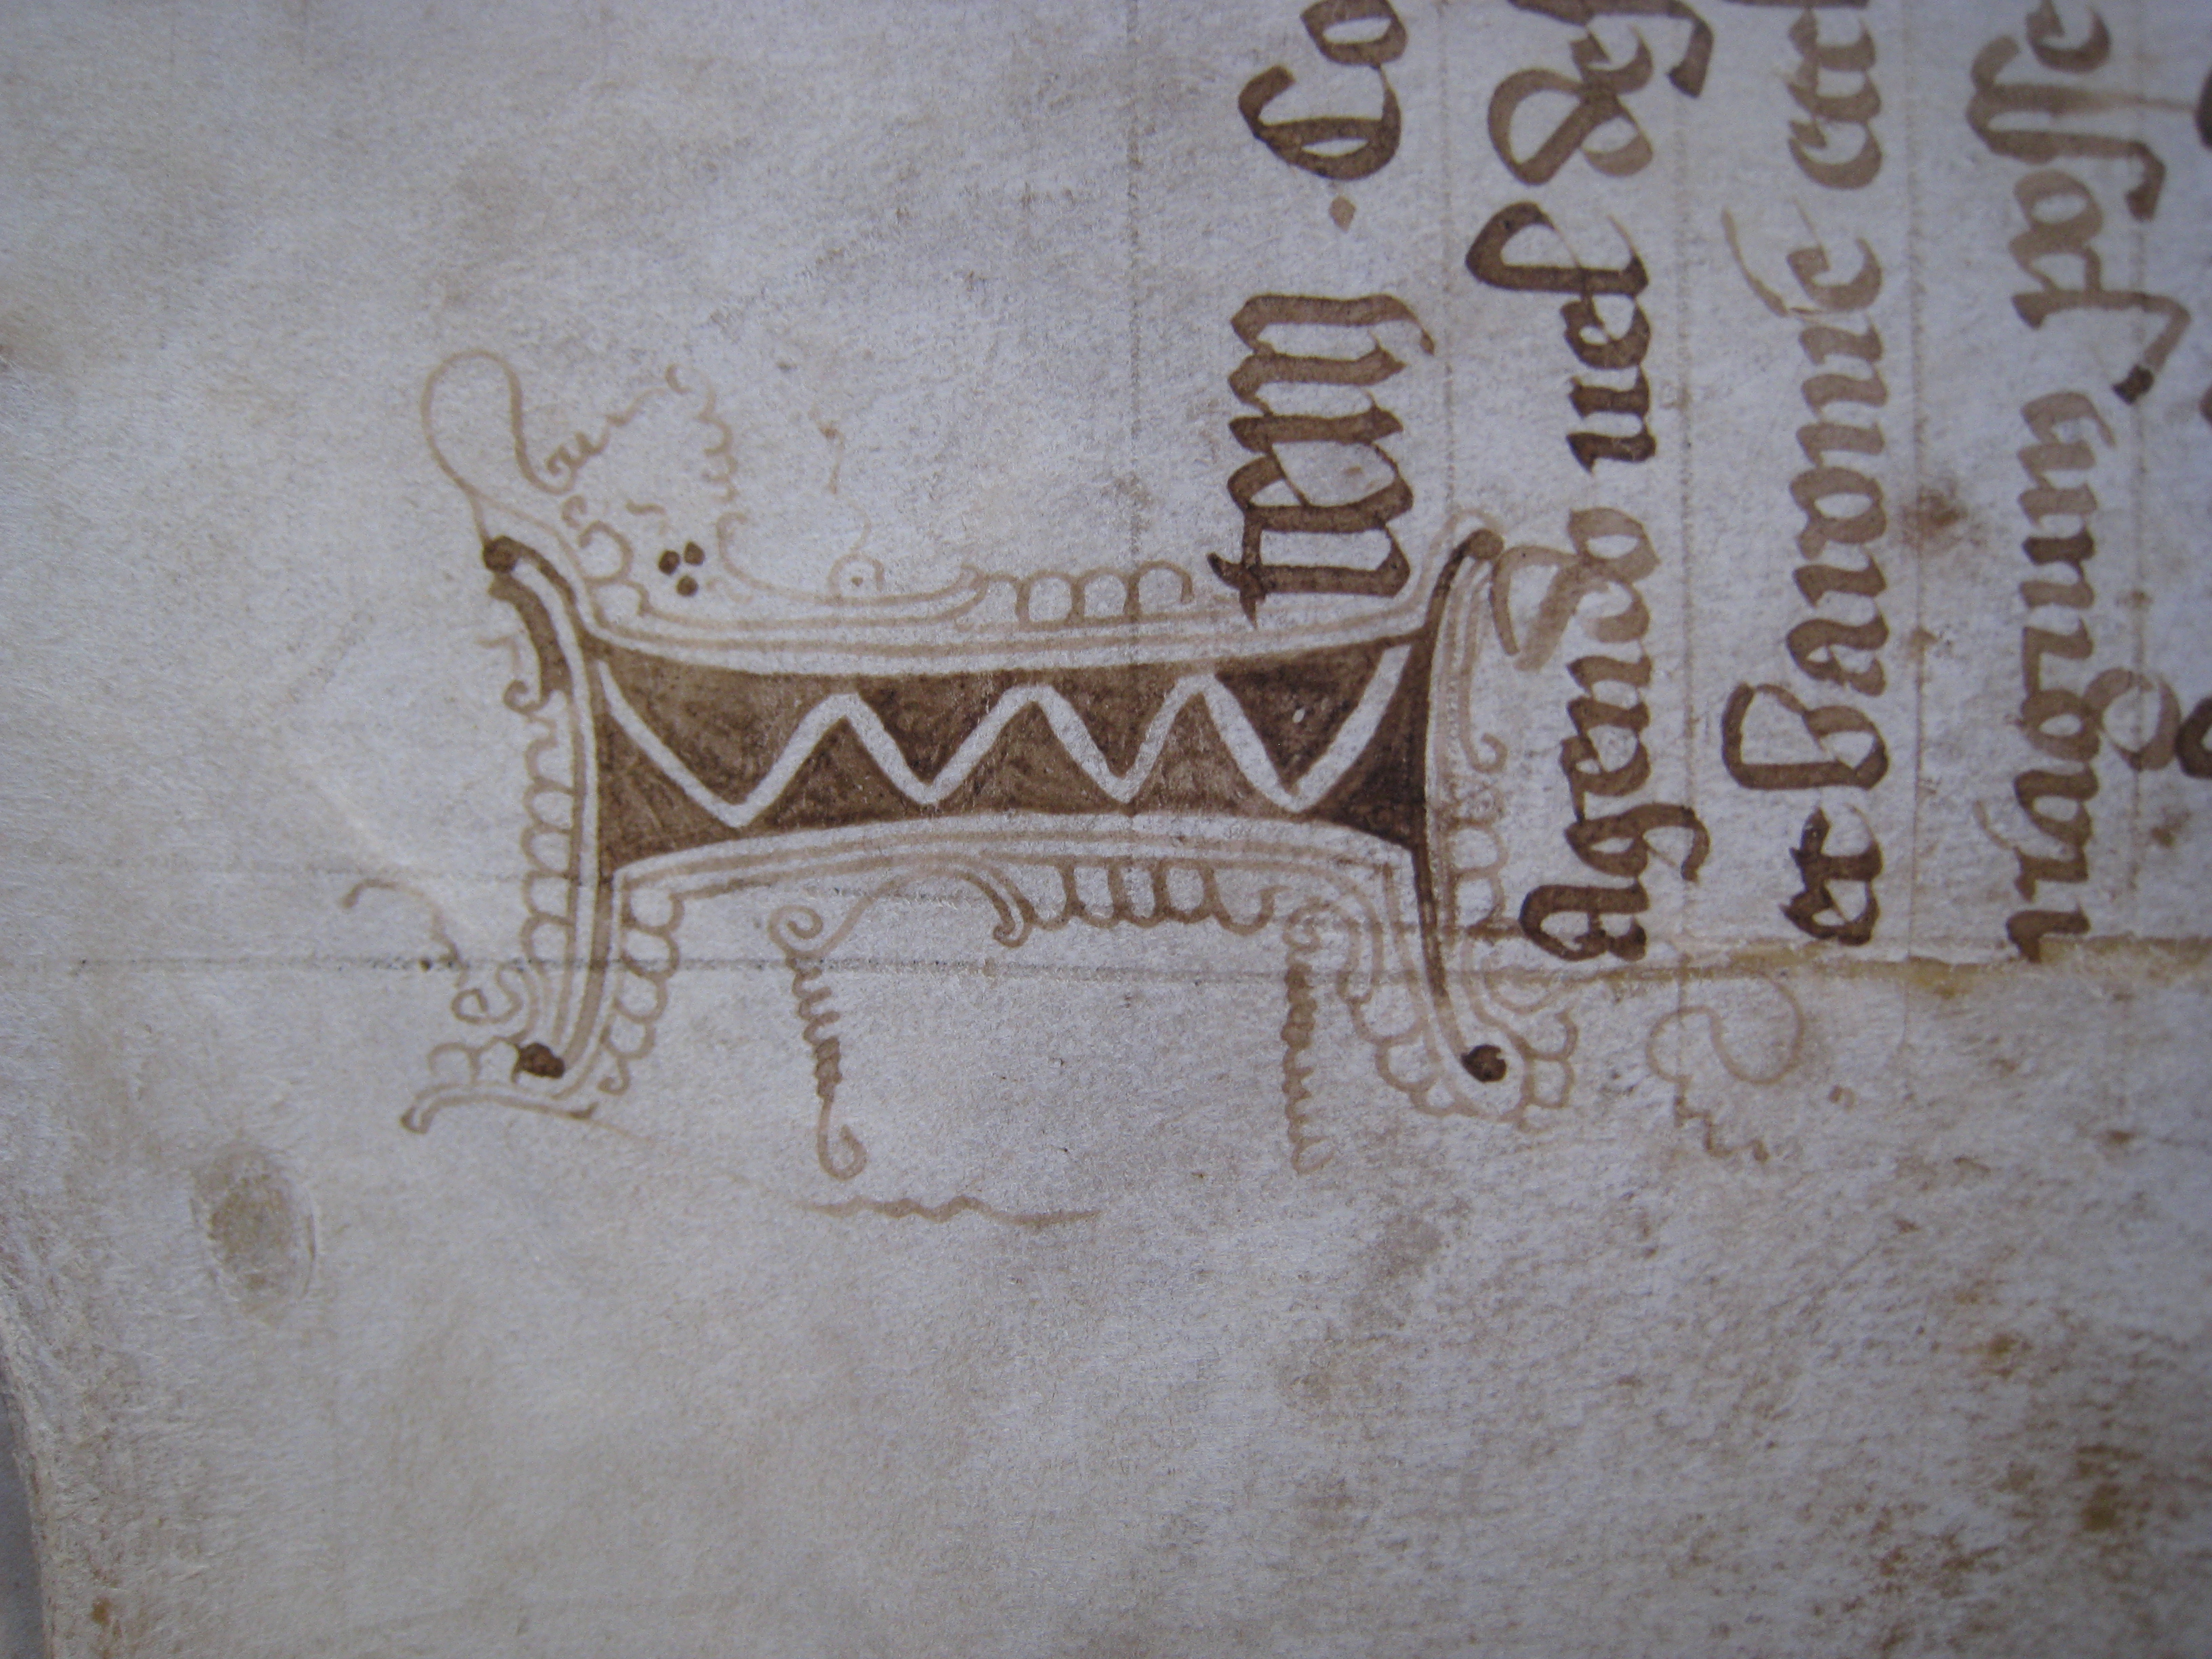 Item · Co
Agendo uel def
et baronie
posse